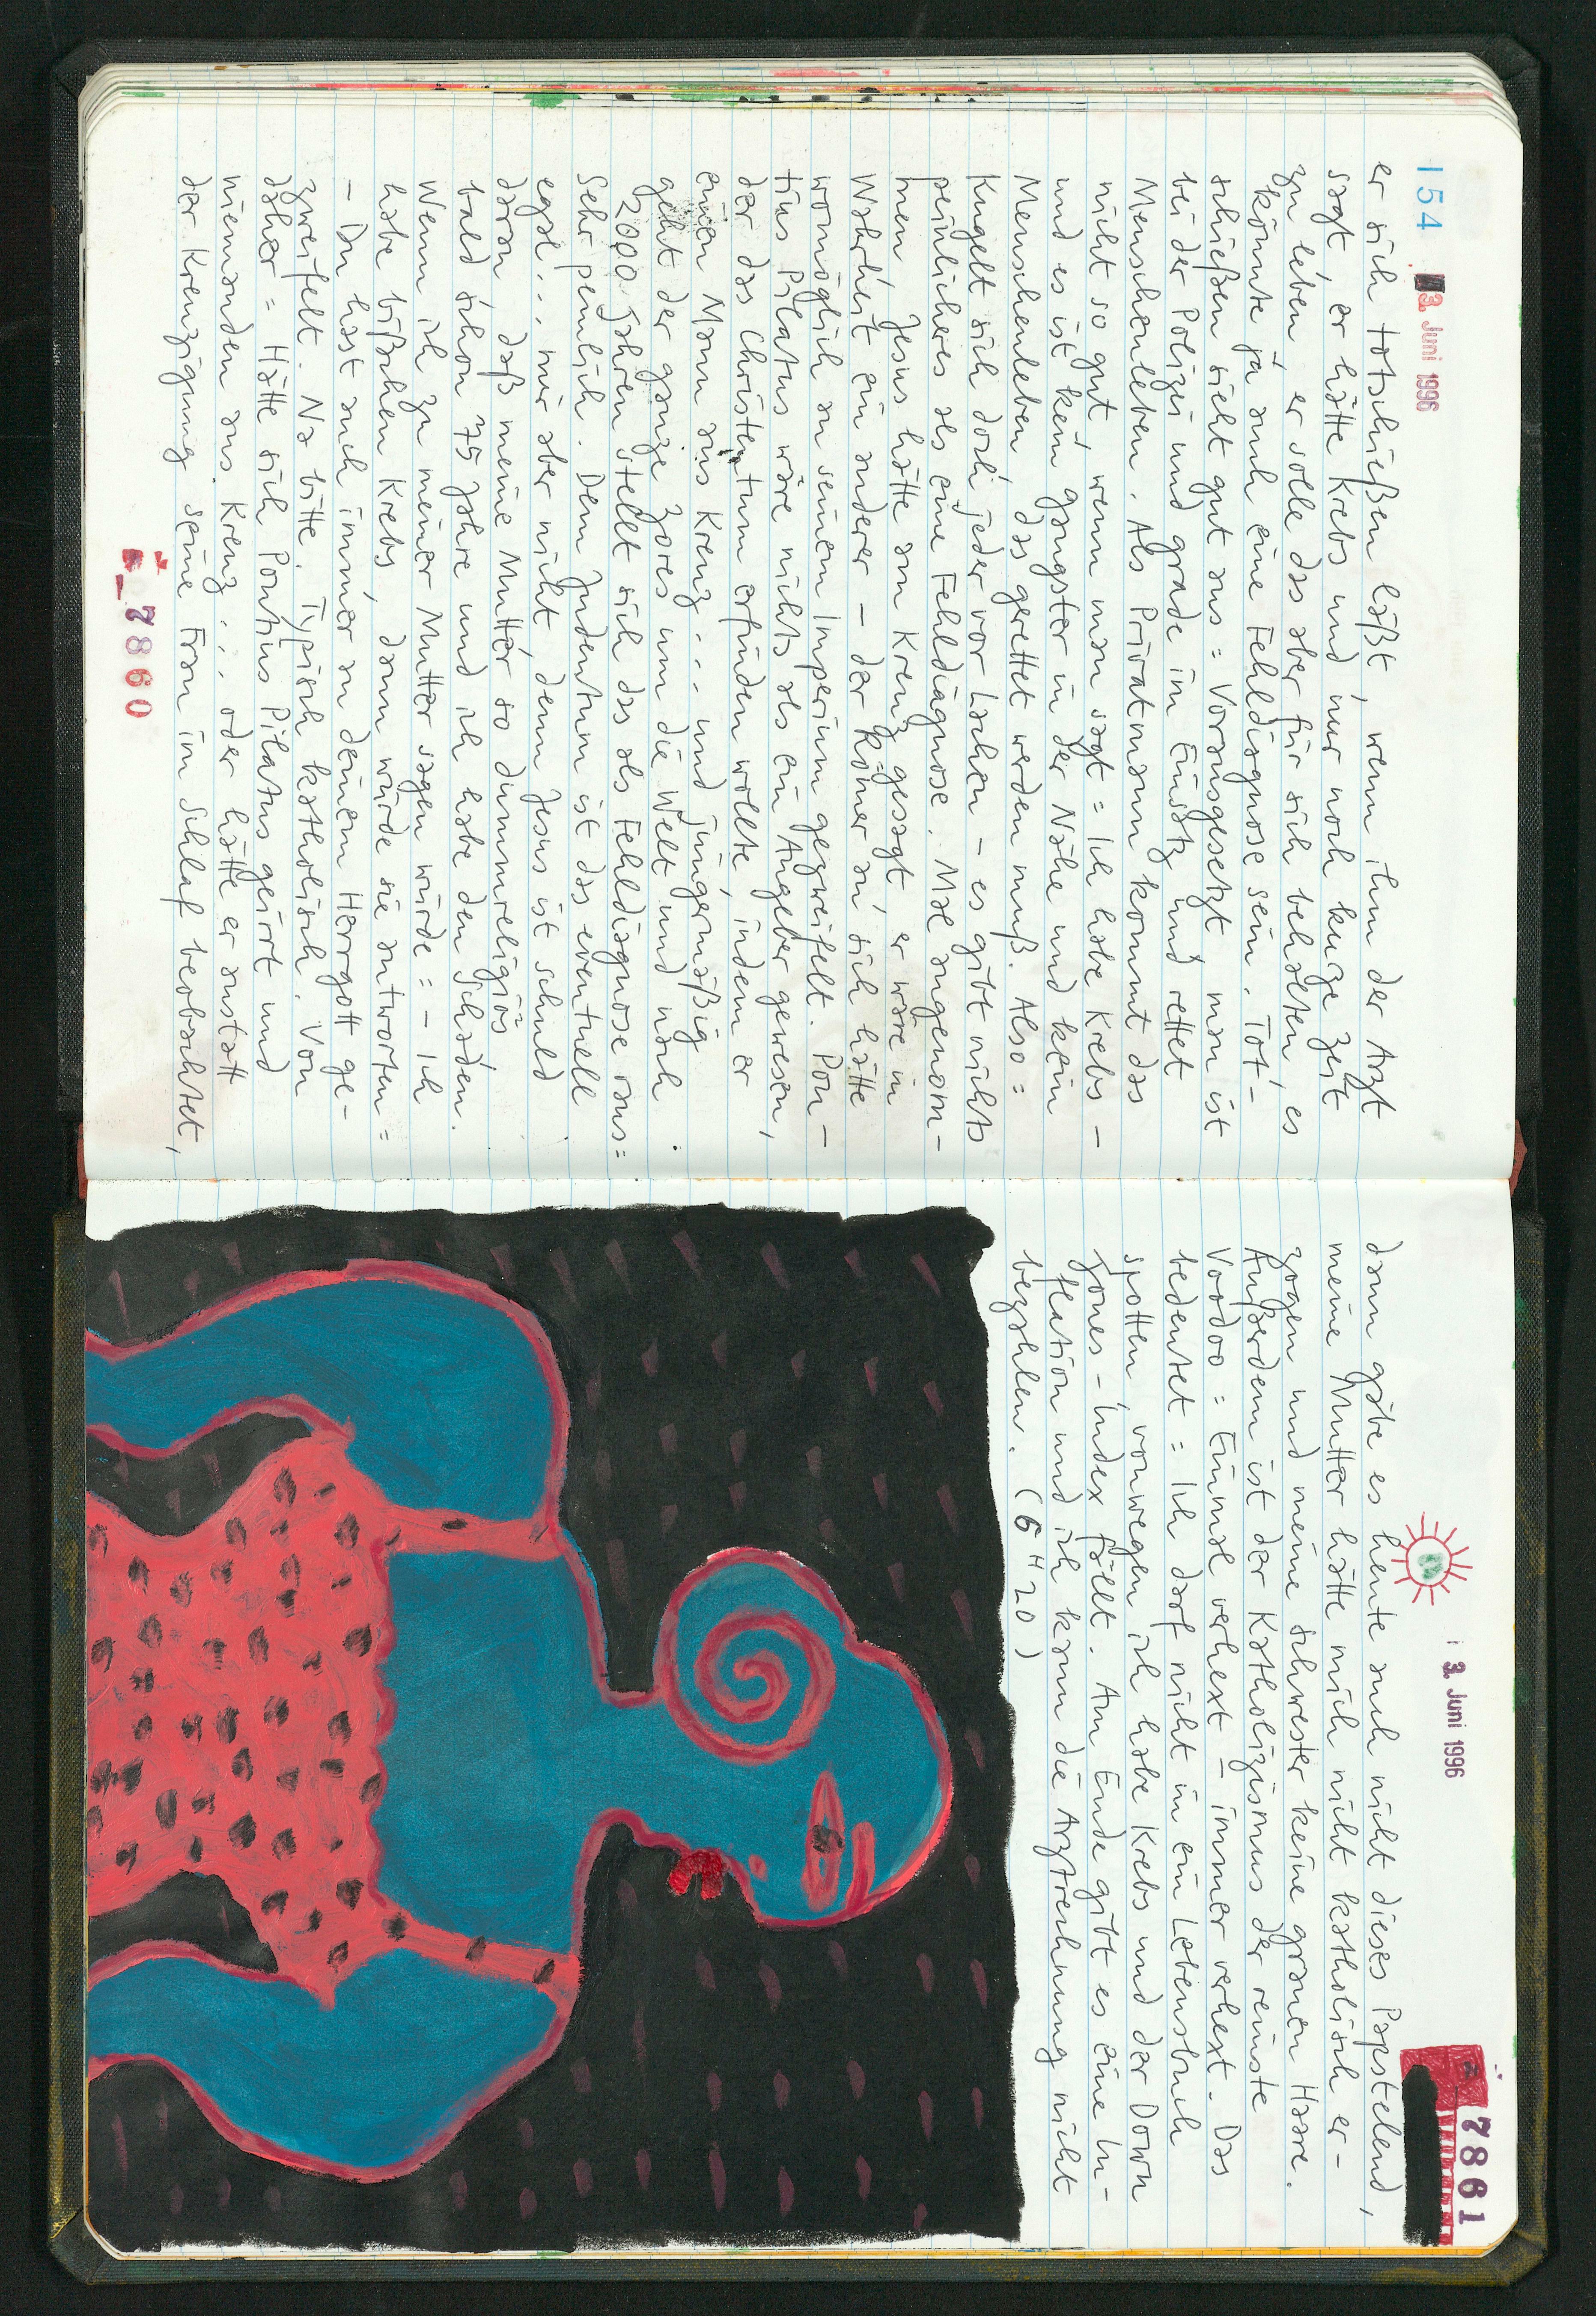 154
3. Juni 1996
er sich totschießen läßt, wenn ihm der Arzt
sagt, er hätte Krebs und nur noch kurze Zeit
zu leben, er solle das aber für sich behalten, es
könnte ja auch eine Fehldiagnose sein. Tot-
schießen sieht gut aus = Vorausgesetzt, man ist
bei der Polizei und grade in Einsatz und rettet
Menschenleben. Als Privatmann kommt das
nicht so gut, wenn man sagt = Ich habe Krebs -
und es ist kein Gangster in der Nähe und kein
Menschenleben, das gerettet werden muß. Also =
Kugelt sich doch jeder vor Lachen - es gibt nichts
peinlicheres als eine Fehldiagnose. Mal angenom-
men, Jesus hätte am Kreuz gesagt, er wäre in
Wahrheit ein anderer - der Römer an sich hätte
womöglich an seinem Imperium gezweifelt. Pon-
tius Pilatus wäre nichts als ein Angeber gewesen,
der das Christentum erfinden wollte, indem er
einen Mann ans Kreuz ... und jüngermäßig
geht der ganze Zores um die Welt und nach
2000 Jahren stellt sich das als Fehldiagnose raus =
Sehr peinlich. Dem Judentum ist das eventuell
egal ... mir aber nicht, denn Jesus ist schuld
daran, daß meine Mutter so dummreligiös
bald schon 75 Jahre und ich habe den Schaden.
Wenn ich zu meiner Mutter sagen würde = - Ich
habe bißchen Krebs, dann würde sie antworten =
- Du hast auch immer an deinem Herrgott ge-
zweifelt. Na bitte. Typisch katholisch. Von
daher = Hätte sich Pontius Pilatus geirrt und
niemanden ans Kreuz ... oder hätte er anstatt
der Kreuzigung seine Frau im Schlaf beobachtet,
7860
3. Juni 1996
7861
dann gäbe es heute auch nicht dieses Papstelend,
meine Mutter hätte mich nicht katholisch er-
zogen und meine Schwester keine grauen Haare.
Außerdem ist der Katholizismus der reinste
Voodoo = Einmal verhext - immer verhext. Das
bedeutet = Ich darf nicht in ein Lebensbuch
spotten, vonwegen ich habe Krebs und der Down
Jones-Index fällt. Am Ende gibt es eine In-
flation und ich kann die Arztrechnung nicht
bezahlen. (6" 20)